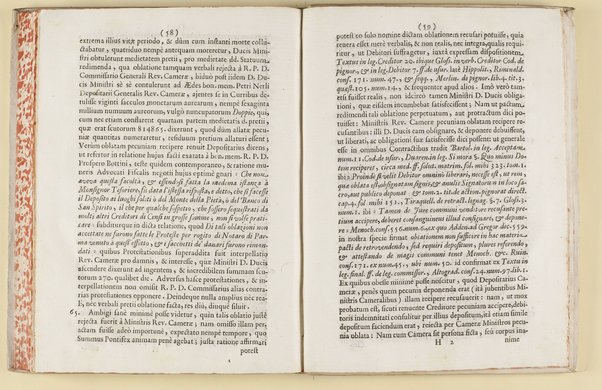 (58)
extrema illius vitæ periodo, & dùm cum instanti morte collu-
ctabatur, quatriduo nempè antequam moreretur, Ducis Mini-
stri obtulerunt medietatem pretij, pro medietate dd. Statuum
redimenda, qua oblatione tamquam verbali rejecta à R. P. D.
Commissario Generali Rev. Cameræ, biduò post iidem D. Du-
cis Ministri sè sè contulerunt ad Ædes bon. mem. Petri Nerli
Depositarij Generalis Rev. Cameræ, ajentes se in Curribus de-
tulisse viginti sacculos monetarum aurearum, nempè sexaginta
millium nummum aureorum, vulgò nuncupatorum Doppie, qui,
cum nec etiam conficerent quartam partem medietatis d. pretij,
quæ erat scutorum 814865. dixerunt, quod dùm aliatæ pecu-
niæ quantitas numeraretur, residuum pretium allaturi essent;
Verùm oblatam pecuniam recipere renuit Depositarius dicens,
ut refertur in relatione hujus facti exarata à bo. mem. R. P. D.
Prospero Bottini, teste quidem contemporaneo, & ratione mu-
neris Advocati Fiscalis negotij hujus optimè gnari: Che non
aveva questa facoltà, & essendosi fatta la medema istanza à
Monsignor Tesoriero, sù data l'istessa risposta, e detto, che si facesse
il Deposito ne luoghi soliti ò del Monte della Pietà, ò del Banco di
San Spirito, il che per qualche sospetto, che fossero sequestrati da
molti altri Creditori de Censi in grosse somme, non si volse prati-
care: subditurque in dicta relatione, quod Di tali oblationi non
accettate ne furono fatte le Proteste per rogito di Notaro di Par-
ma venuto à quest' effetto, & i sacchetti de' danari furono rimen-
dati: quibus Protestationibus superaddita fuit interpellatio
Rev. Cameræ pro damnis, & interesse, quæ Ministri D. Ducis
ascendere dixerunt ad ingentem, & incredibilem summam scu-
torum 270. qualibet die. Adversus hasce protestationes, & in-
terpellationem non omisit R. P. D. Commissarius alias contra-
rias protestationes opponere. Deindequè nulla amplius nec rea-
li, nec verbali pretij oblatione facta, res diù, dinquè siluit.
65. Ambigi sanè minimè posse videtur, quin talis oblatio justè
rejecta fuerit à Ministris Rev. Cameræ; nam omisso illam per-
actam fuisse adeò importunè, expectato nempè tempore, quo
Summus Pontifex animam penè agebat; justa ratione affirmari
potest
(59)
potest to solo nomine dictam oblationem recusari potuisse, quia
revera esset merè verbalis, & non realis, nec integra, qualis requi-
ritur, ut Debitori suffragetur, juxtà expressam dispositionem.
Textus in leg. Creditor 20. ibique Gloss. in verb. Creditor Cod. de
pignor., & in leg. Debitor 7. ff. de usur. latè Hippolit., Rominald.
cons. 171. num. 47., & seqq. Merlin. de pignor. lib. 4. tit. 1.
quæst. 105. num. 14. & frequenter apud alios. Imò verò tam-
etsi fuisset realis, non idcircò tamen Ministri D. Ducis obliga-
tioni, quæ eisdem incumbebat satisfecissent; Nam ut pactum,
redimendi tali oblatione perpetuatum, aut protractum dici po-
tuisset; Ministris Rev. Cameræ pecuniam oblatam recipere re-
cusantibus: illi D. Ducis eam obsignare, & deponere debuissent,
ut liberati, ac obligationi suæ satisfecisse dici possent: ut generale
esse in omnibus Contractibus tradit Bartol. in leg. acceptam,
num. 11. Cod. de usur., Duaren. in leg. Si mora 5. Quo minus Do-
tem reciperet, circa med. ff. solut. matrim. fol. mihi 323. tom. 1.
ibi: Proinde si velit Debitor omninò liberari, necesse est, ut rem,
quæ oblata est, obsignatam signis, & annulo Signatorum in loco sa-
cro, aut publico deponat; & tom. 2. tit. de action. pignorat. direct.
cap. 4. fol. mihi 151., Tiraquell. de retract. lignag. §. 7. Gloss. 3.
num. 1. ibi: Tamen de Jure communi venditore recusante pre-
tium accipere, debent consanguinei illud consignari, & depone-
re: Menoch. cons. 556. num. 6. ex quo Adden. ad Gregor. dec. 559.
in nostra specie firmat oblationem non sufficere in hac materia
pactis de retrovendendo, sed requiri depositum, plures referendo,
& attestando de magis communi tenet Menoch. &c. Ruin.
cons. 171. ex num. 45., ubi num. 50. id confirmat ex Textu in
leg. final. ff. de leg. commissor., Altograd. cons. 24. num. 97. lib. 1.
Ex quibus obesse minimè posse noscitur, quod Depositarius Ca-
meræ, penès quem pecunia deponenda erat (ità jubentibus Mi-
nistris Cameralibus) illam recipere recusaverit: nam, ut mox
probatum est, sicuti renuente Creditore pecuniam accipere, debi-
toris indemnitati consultitur per illius depositum, ità etiam simile
depositum faciendum erat, rejecta per Cameræ Ministros pecu-
nia oblata: Nam cum Camera sit persona ficta, seù corpus ina-
H 2
nime